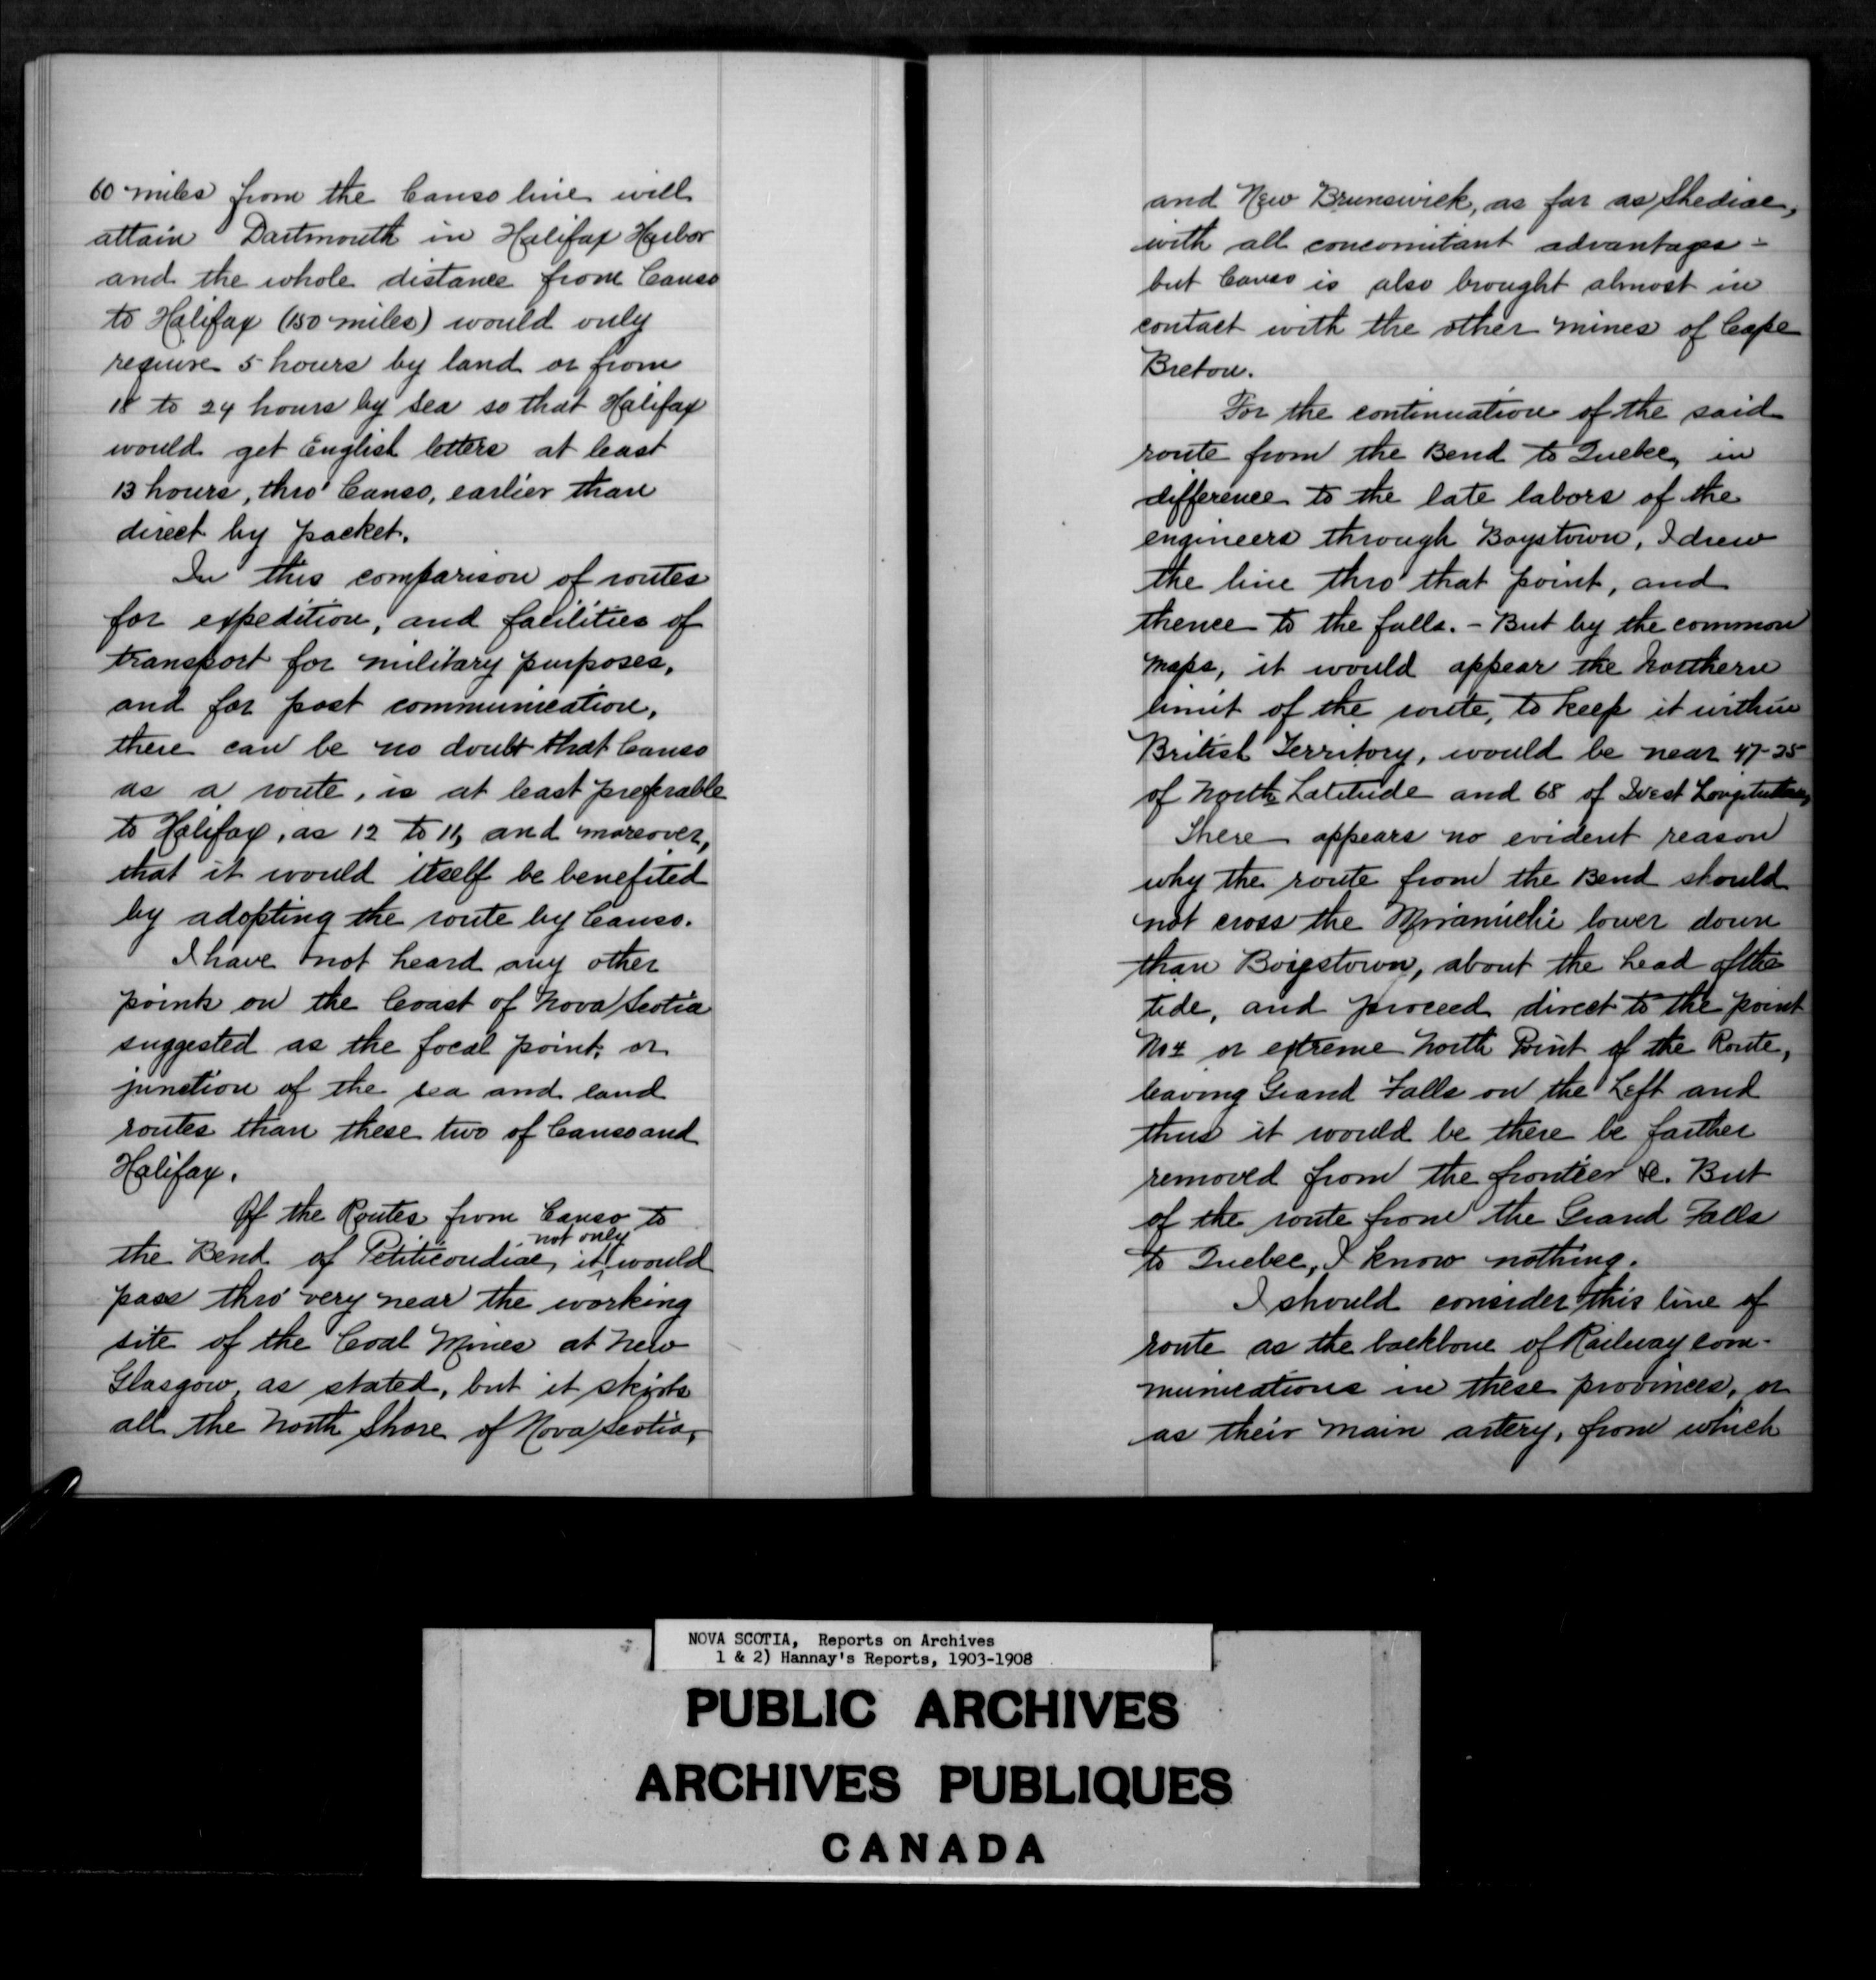 60 miles from the Canso line will
attain Dartmouth in Halifax Harbor
and the whole distance from Canso
to Halifax (150 miles) would only
require 5 hours by land or from
18 to 24 hours by sea so that Halifax
would get English letters at least
13 hours, thro' Canso, earlier than
direct by packet.
In this comparison of routes
for expedition, and facilities of
transport for military purposes,
and for post communication,
there can be no doubt that Canso
as a route, is at least preferable
to Halifax, as 12 to 11, and moreover,
that it would itself be benefited
by adopting the route by Canso.
I have not heard any other
points on the Coast of Nova Scotia
suggested as the focal point, or
junction of the sea and land
routes than these two of Canso and
Halifax.
Of the Routes from Canso to
the Bend of Petiticondiac, it not only would
pass thro' very near the working
site of the Coal Mines at New
Glasgow, as stated, but it skirts
all the North Shore of Nova Scotia,
and New Brunswick, as far as Shediac,
with all concomitant advantages -
but Canso is also brought almost in
contact with the other mines of Cape
Breton.
For the continuation of the said
route from the Bend to Quebec, in
difference to the late labors of the
engineers through Boystown, I drew
the line thro' that point, and
thence to the falls. - But by the common
maps, it would appear the Northern
limit of the route, to keep it within
British Territory, would be near 47-25
of North Latitude and 68 of West Longitude,
There appears no evident reason
why the route from the Bend should
not cross the Miramichi lower down
than Boiestown, about the head of the
tide, and proceed direct to the point
No 4 or extreme North Point of the Route,
leaving Grand Falls on the Left and
thus it would be there be farther
removed from the frontier &c. But
of the route from the Grand Falls
to Quebec, I know nothing.
I should consider this line of
route as the backbone of Railway com-
munications in these provinces, or
as their main artery, from which
NOVA SCOTIA, Reports on Archives
1 & 2) Hannay's Reports, 1903-1908
PUBLIC ARCHIVES
ARCHIVES PUBLIQUES
CANADA